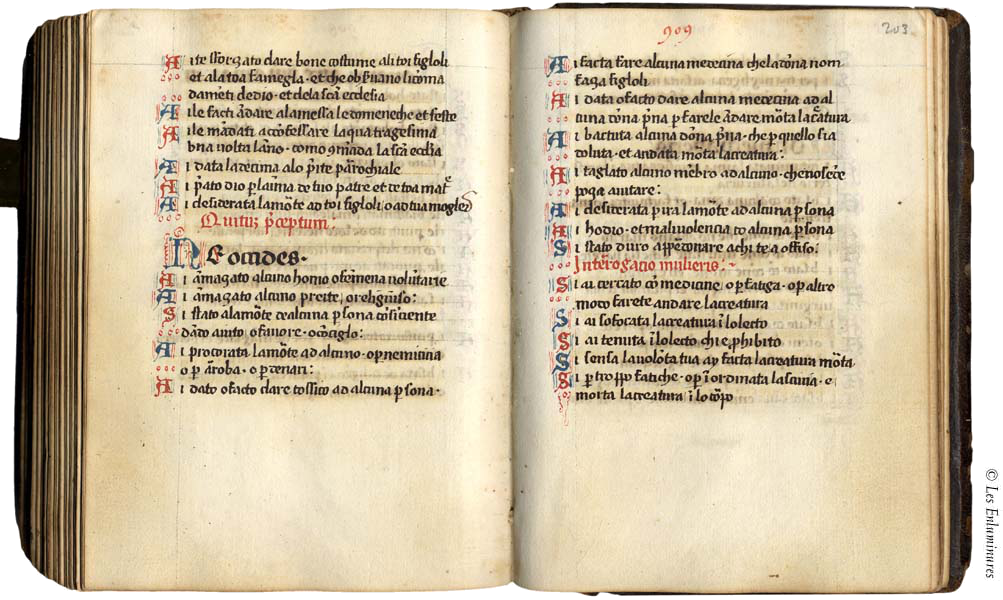 Ai te sforzato dare bone costume ali toi figloli
et ala toa famegla · et che observano li coma
damēti de dio · et dela scā ecclesia
Ai le facti ādare ala messa le domeneche et feste
Ai le mādati a cōfessare la quatragesima
una volta lāno · como cōmāda la scā ecclīa
Ai data la decima alo prīte parochiale
Ai pgato dio p laīma de tuo patre et de toa mat
Ai desiderata la mōte ad toi figloli · o ad tua mogle
Quītuz pceptum :
NE occides ·
Ai āmazato alcuno homo o femena volūtarie
Ai āmazato alcuno preite, o religiuso :
Si stato ala mōte de alcuna psona cōsciente
dādo aiuto · o favore · o cōsiglo :
Ai procorata la mōte ad alcuno · op nemicitia
o p āroba · o p denari :
Ai dato o facto dare tossico ad alcuna psona ·
909
203
Ai facta fare alcuna medecina che la dōna nom
faza figloli
Ai data o facto dare alcuna medecina ad al
cuna dōna pna p farele ādare mōta la catura
Ai battuta alcuna dōna pna · che p quello sia
doluta · et andata mōta la creatura :
Ai taglato alcuno mēbro ad alcuno · che nose
poza aiutare :
Ai desiderata pira la mōte ad alcuna psona
Ai hodio · et malivolencia cō alcuna psona
Si stato duro a ppdonare a chi te a offiso :
Interogatio mulieris :
Si ai cercato cō medicine · op fatiga · op altro
modo farete andare la creatura
Si ai sofocata la creatura ī lo lecto
Si ai tenuta ī lo lecto chi e phibito
Si sensa la volōta tua ay facta la creatura mōta ·
Si p troppo fatiche · op īordinata lascivia · e
morta la creatura ī lo corpo
© Les Enluminures